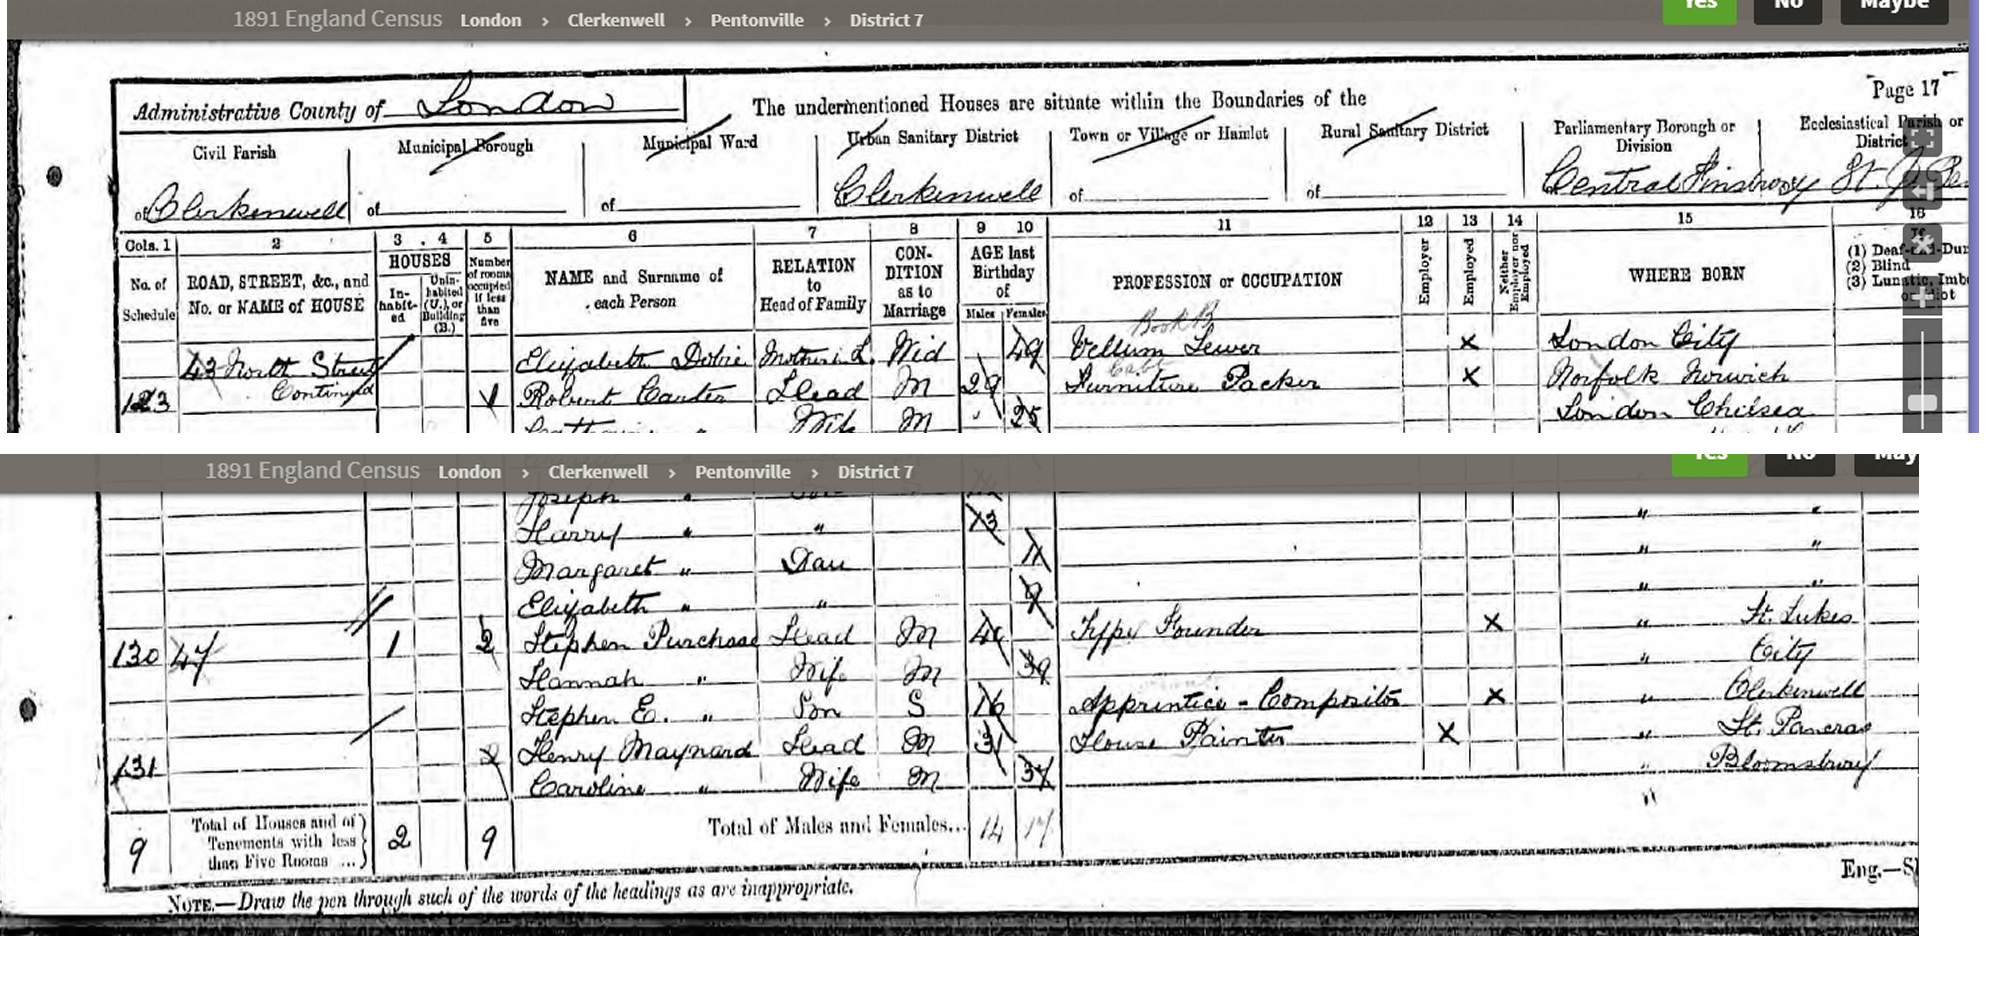 1891 England Census London > Clerkenwell > Pentonville > District 7
Yes No Maybe
Page 17
Administrative County of London The undermentioned Houses are situate within the Boundaries of the
Civil Parish Municipal Borough Municipal Ward Urban Sanitary District Town or Village or Hamlet Rural Sanitary District Parliamentary Borough or Division Ecclesiastical Parish or District
of Clerkenwell of of Clerkenwell of of of Central Finsbury St. J
Cols. 1 2 3 . 4 5 6 7 8 9 10 11 12 13 14 15 16
No. of Schedule ROAD, STREET, &c., and No. or NAME of HOUSE HOUSES In-habit-ed Unin-habited (U.), or Building (B.) Number of rooms occupied if less than five NAME and Surname of each Person RELATION to Head of Family CON-DITION as to Marriage AGE last Birthday of Males Females PROFESSION or OCCUPATION Employer Employed Neither Employer nor Employed WHERE BORN (1) Deaf-and-Dumb (2) Blind (3) Lunatic, Imb
Book B
43 North Street Elizabeth Dobie Mother in L. Wid 49 Vellum Sewer x London City
Continued
Cabt
123 Robert Carter Head M 29 Furniture Packer x Norfolk Norwich
Wife M 25 London Chelsea
1891 England Census London > Clerkenwell > Pentonville > District 7
Yes No May
Joseph "
Harry " " 13 " "
Margaret " Dau 11 " "
Elizabeth " " 9 " "
130 47 1 2 Stephen Purchase Head M Type Founder x " St. Lukes
Hannah " Wife M 39 " City
Stephen E. " Son S 16 Apprentice - Compositor x " Clerkenwell
131 2 Henry Maynard Head M 31 House Painter x " St. Pancras
Caroline " Wife M 37 " Bloomsbury
9 Total of Houses and of Tenements with less than Five Rooms ... 2 9 Total of Males and Females... 14 17
Eng.—S
NOTE.—Draw the pen through such of the words of the headings as are inappropriate.